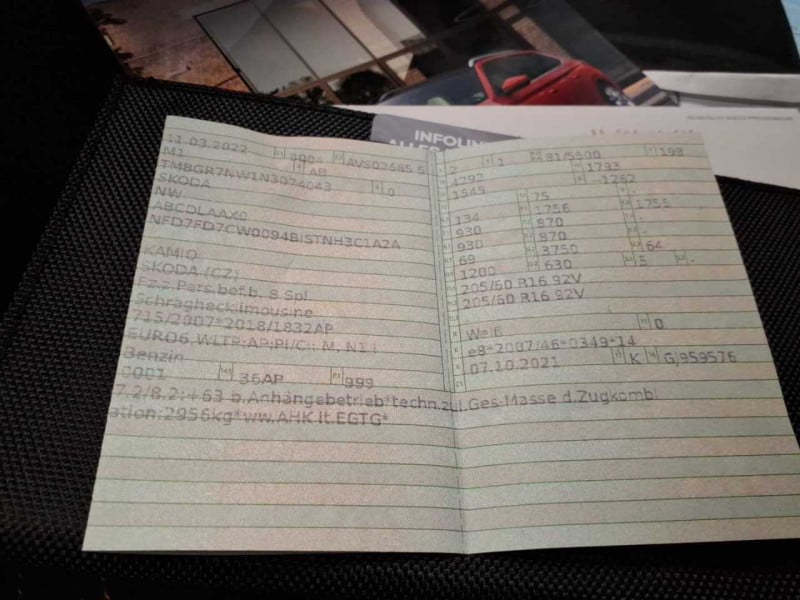 INFOLIN
11.03.2022 AVS02685 5
M1 AB
TMBGR7NW1N3024043 0
SKODA
NW
ABCDLAAX0
NFD7FD7CW0094BISTNH3C1A2A
KAMIQ
SKODA (CZ)
Fz.z.Pers.bef.b. 8 Spl.
Schräghecklimousine
715/2007*2018/1832AP
EURO6 WLTP;AP;PI/CI; M, N1 I
Benzin
0001 36AP 999
7.2/8.2:+63 b.Anhängebetrieb*techn.zul.Ges-Masse d.Zugkombi
ation:2956kg*ww.AHK lt.EGTG*
2 1 81/5500 198
4292 1793
1545 -1262
75 -
134 1756 1755
930 870 -
930 870 -
69 3750 64
1200 630 5 -
205/60 R16 92V
205/60 R16 92V
Weiß 0
e8*2007/46*0349*14
07.10.2021 K G,959576